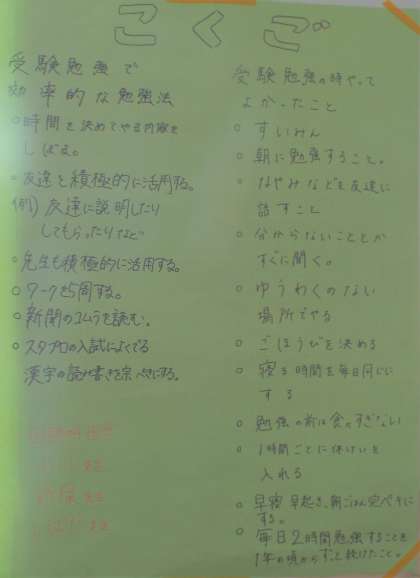 こくご
受験勉強で
効率的な勉強法
○時間を決めてやる内容を
しぼる。
○友達を積極的に活用する。
(例) 友達に説明したり
してもらったりなど
○先生も積極的に活用する。
○ワークを5周する。
○新聞のコムラを読む。
○スタプロの入試によくでる
漢字の読み書きを完ペキにする。
受験勉強の時やって
よかったこと
○すいみん
○朝に勉強すること。
○なやみなどを友達に
話すこと
○分からないこととか
すぐに聞く。
○ゆうわくのない
場所でやる
○ごほうびを決める
○寝る時間を毎日同じに
する
○勉強の前は食べすぎない
○1時間ごとに休けいを
入れる
○早寝早起き、朝ごはん完ペキに
する。
○毎日2時間勉強することを
1年の頃からずっと続けたこと。